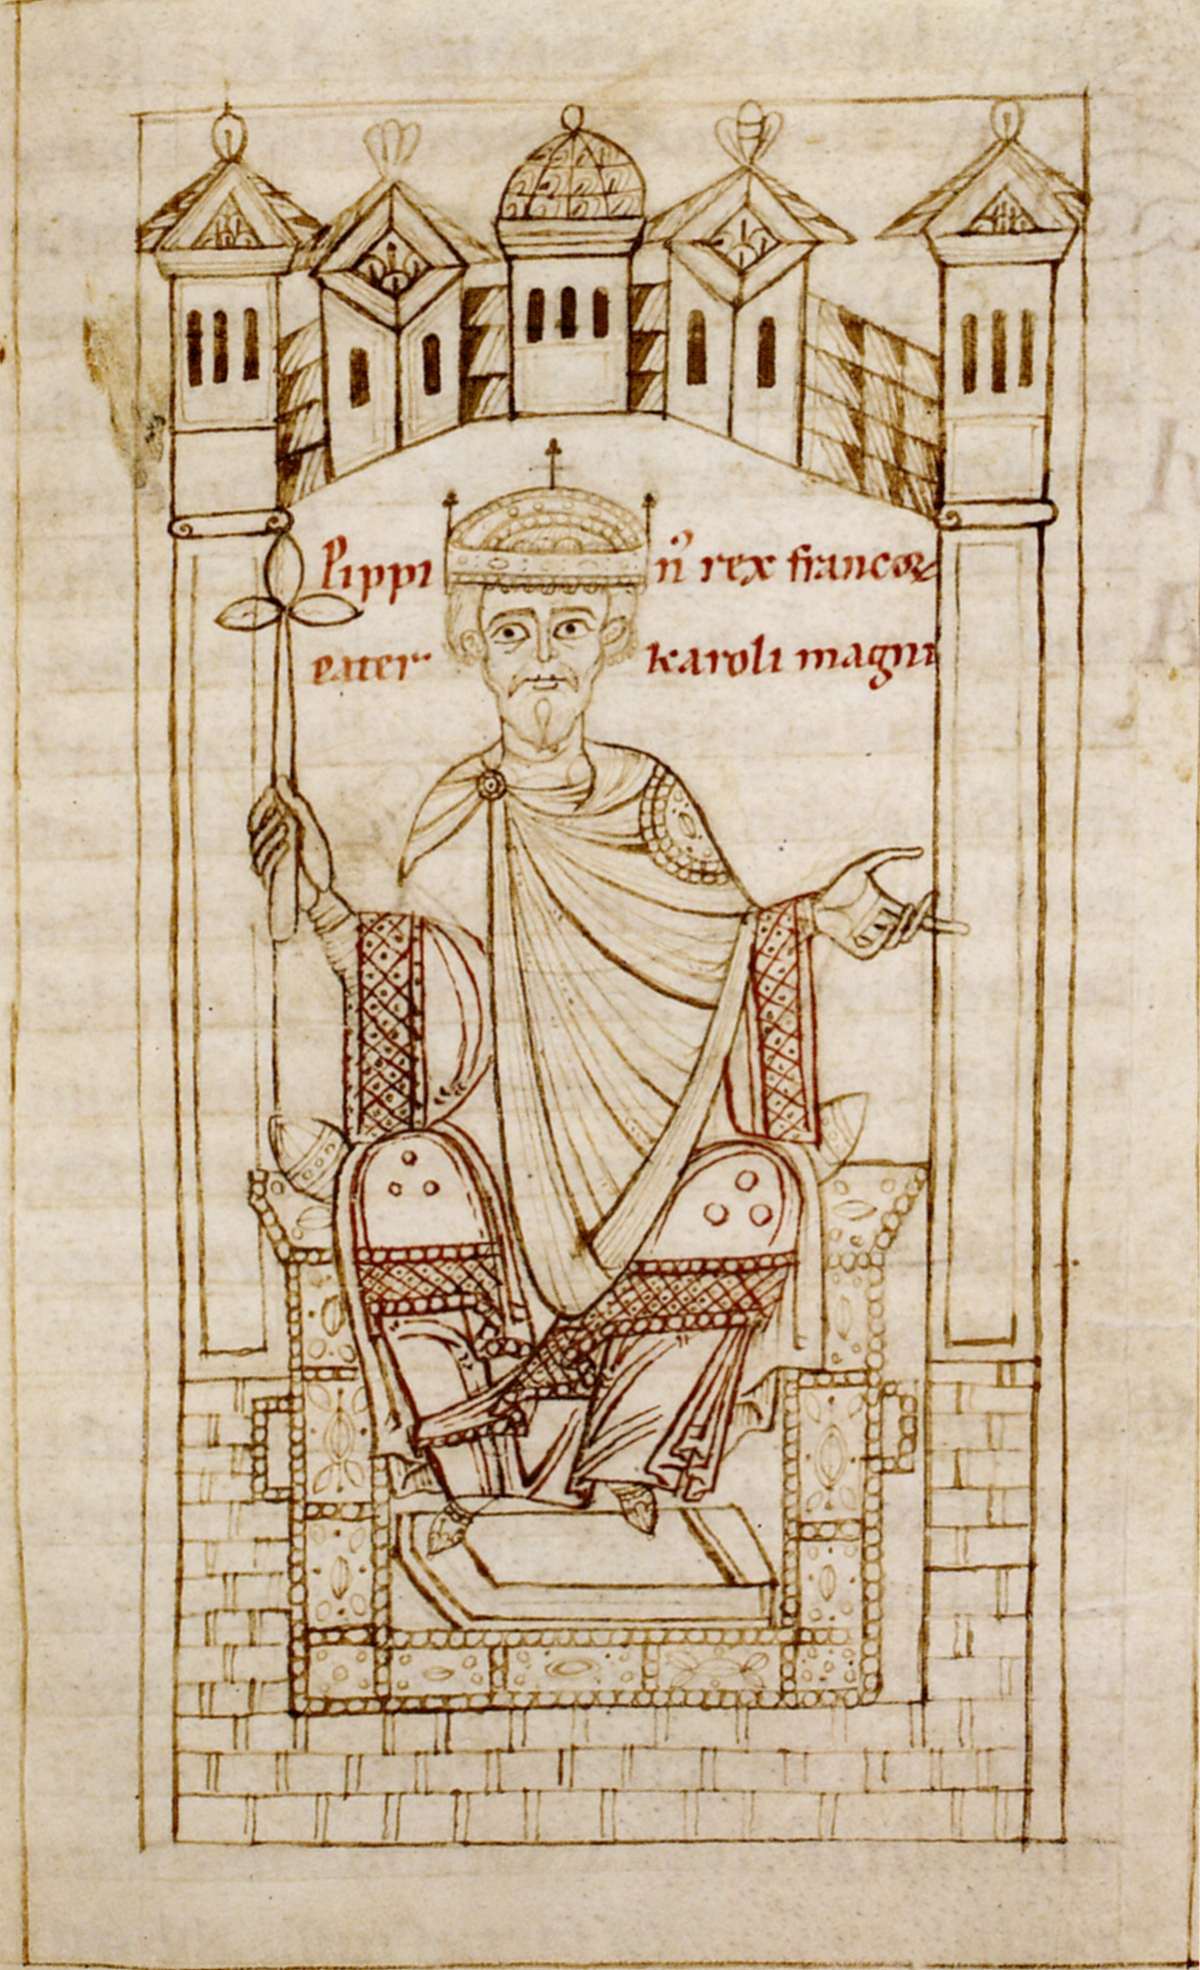 Pippi n᾽ rex francoꝝ
Pater karoli magni